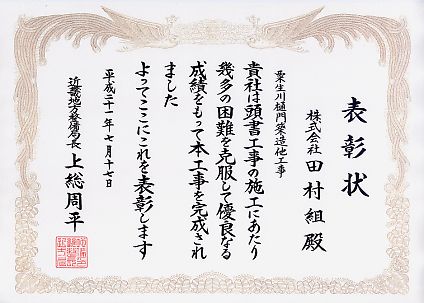 表彰状
株式会社 田村組 殿
粟生川樋門築造他工事
貴社は頭書工事の施工にあたり
幾多の困難を克服して優良なる
成績をもって本工事を完成され
ました
よってここにこれを表彰します
平成二十一年七月十七日
近畿地方整備局長 上総周平